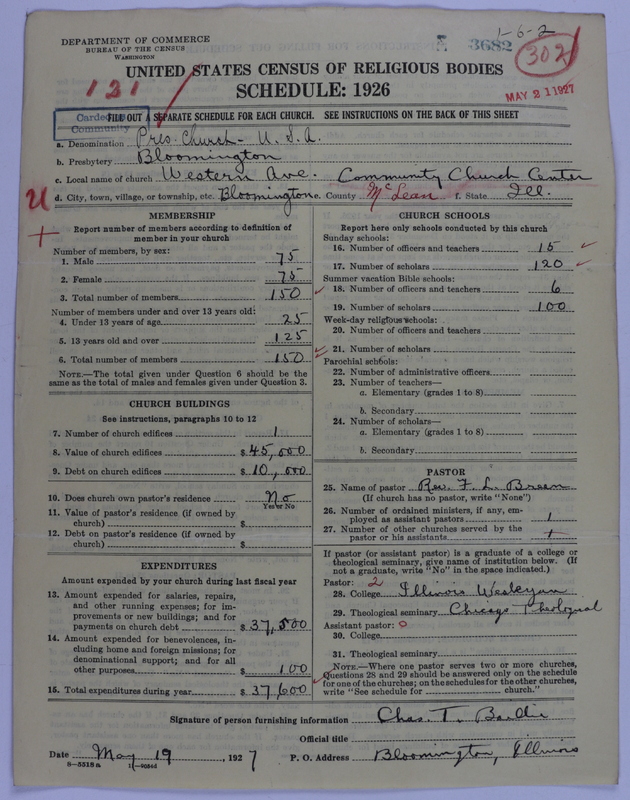 DEPARTMENT OF COMMERCE
BUREAU OF THE CENSUS
WASHINGTON
1-6-2
3682
302
131
UNITED STATES CENSUS OF RELIGIOUS BODIES
SCHEDULE: 1926
MAY 21 1927
Carded
Community
FILL OUT A SEPARATE SCHEDULE FOR EACH CHURCH. SEE INSTRUCTIONS ON THE BACK OF THIS SHEET
a. Denomination Pres. Church - U.S.A.
b. Presbytery Bloomington
c. Local name of church Western Ave. Community Church Center
U
d. City, town, village, or township, etc. Bloomington e. County McLean f. State Ill.
MEMBERSHIP
Report number of members according to definition of
member in your church
Number of members, by sex:
1. Male 75
2. Female 75
3. Total number of members 150
Number of members under and over 13 years old:
4. Under 13 years of age 25
5. 13 years old and over 125
6. Total number of members 150
NOTE.—The total given under Question 6 should be the
same as the total of males and females given under Question 3.
CHURCH BUILDINGS
See instructions, paragraphs 10 to 12
7. Number of church edifices 1
8. Value of church edifices $ 45,000
9. Debt on church edifices $ 10,000
10. Does church own pastor's residence No
Yes or No
11. Value of pastor's residence (if owned by
church) $
12. Debt on pastor's residence (if owned by
church) $
EXPENDITURES
Amount expended by your church during last fiscal year
13. Amount expended for salaries, repairs,
and other running expenses; for im-
provements or new buildings; and for
payments on church debt $ 37,500
14. Amount expended for benevolences, in-
cluding home and foreign missions; for
denominational support; and for all
other purposes $ 100
15. Total expenditures during year $ 37,600
CHURCH SCHOOLS
Report here only schools conducted by this church
Sunday schools:
16. Number of officers and teachers 15
17. Number of scholars 120
Summer vacation Bible schools:
18. Number of officers and teachers 6
19. Number of scholars 100
Week-day religious schools:
20. Number of officers and teachers
21. Number of scholars
Parochial schools:
22. Number of administrative officers
23. Number of teachers—
a. Elementary (grades 1 to 8)
b. Secondary
24. Number of scholars—
a. Elementary (grades 1 to 8)
b. Secondary
PASTOR
25. Name of pastor Rev. F. L. Breen
(If church has no pastor, write "None")
26. Number of ordained ministers, if any, em-
ployed as assistant pastors 1
27. Number of other churches served by the
pastor or his assistants 1
If pastor (or assistant pastor) is a graduate of a college or
theological seminary, give name of institution below. (If
not a graduate, write "No" in the space indicated.)
Pastor: 2
28. College Illinois Wesleyan
29. Theological seminary Chicago Theological
Assistant pastor: 0
30. College
31. Theological seminary
NOTE.—Where one pastor serves two or more churches,
Questions 28 and 29 should be answered only on the schedule
for one of the churches; on the schedules for the other churches,
write "See schedule for church."
Signature of person furnishing information Chas. T.
Official title
Date May 19, 1927 P. O. Address Bloomington, Illinois
8-5518a